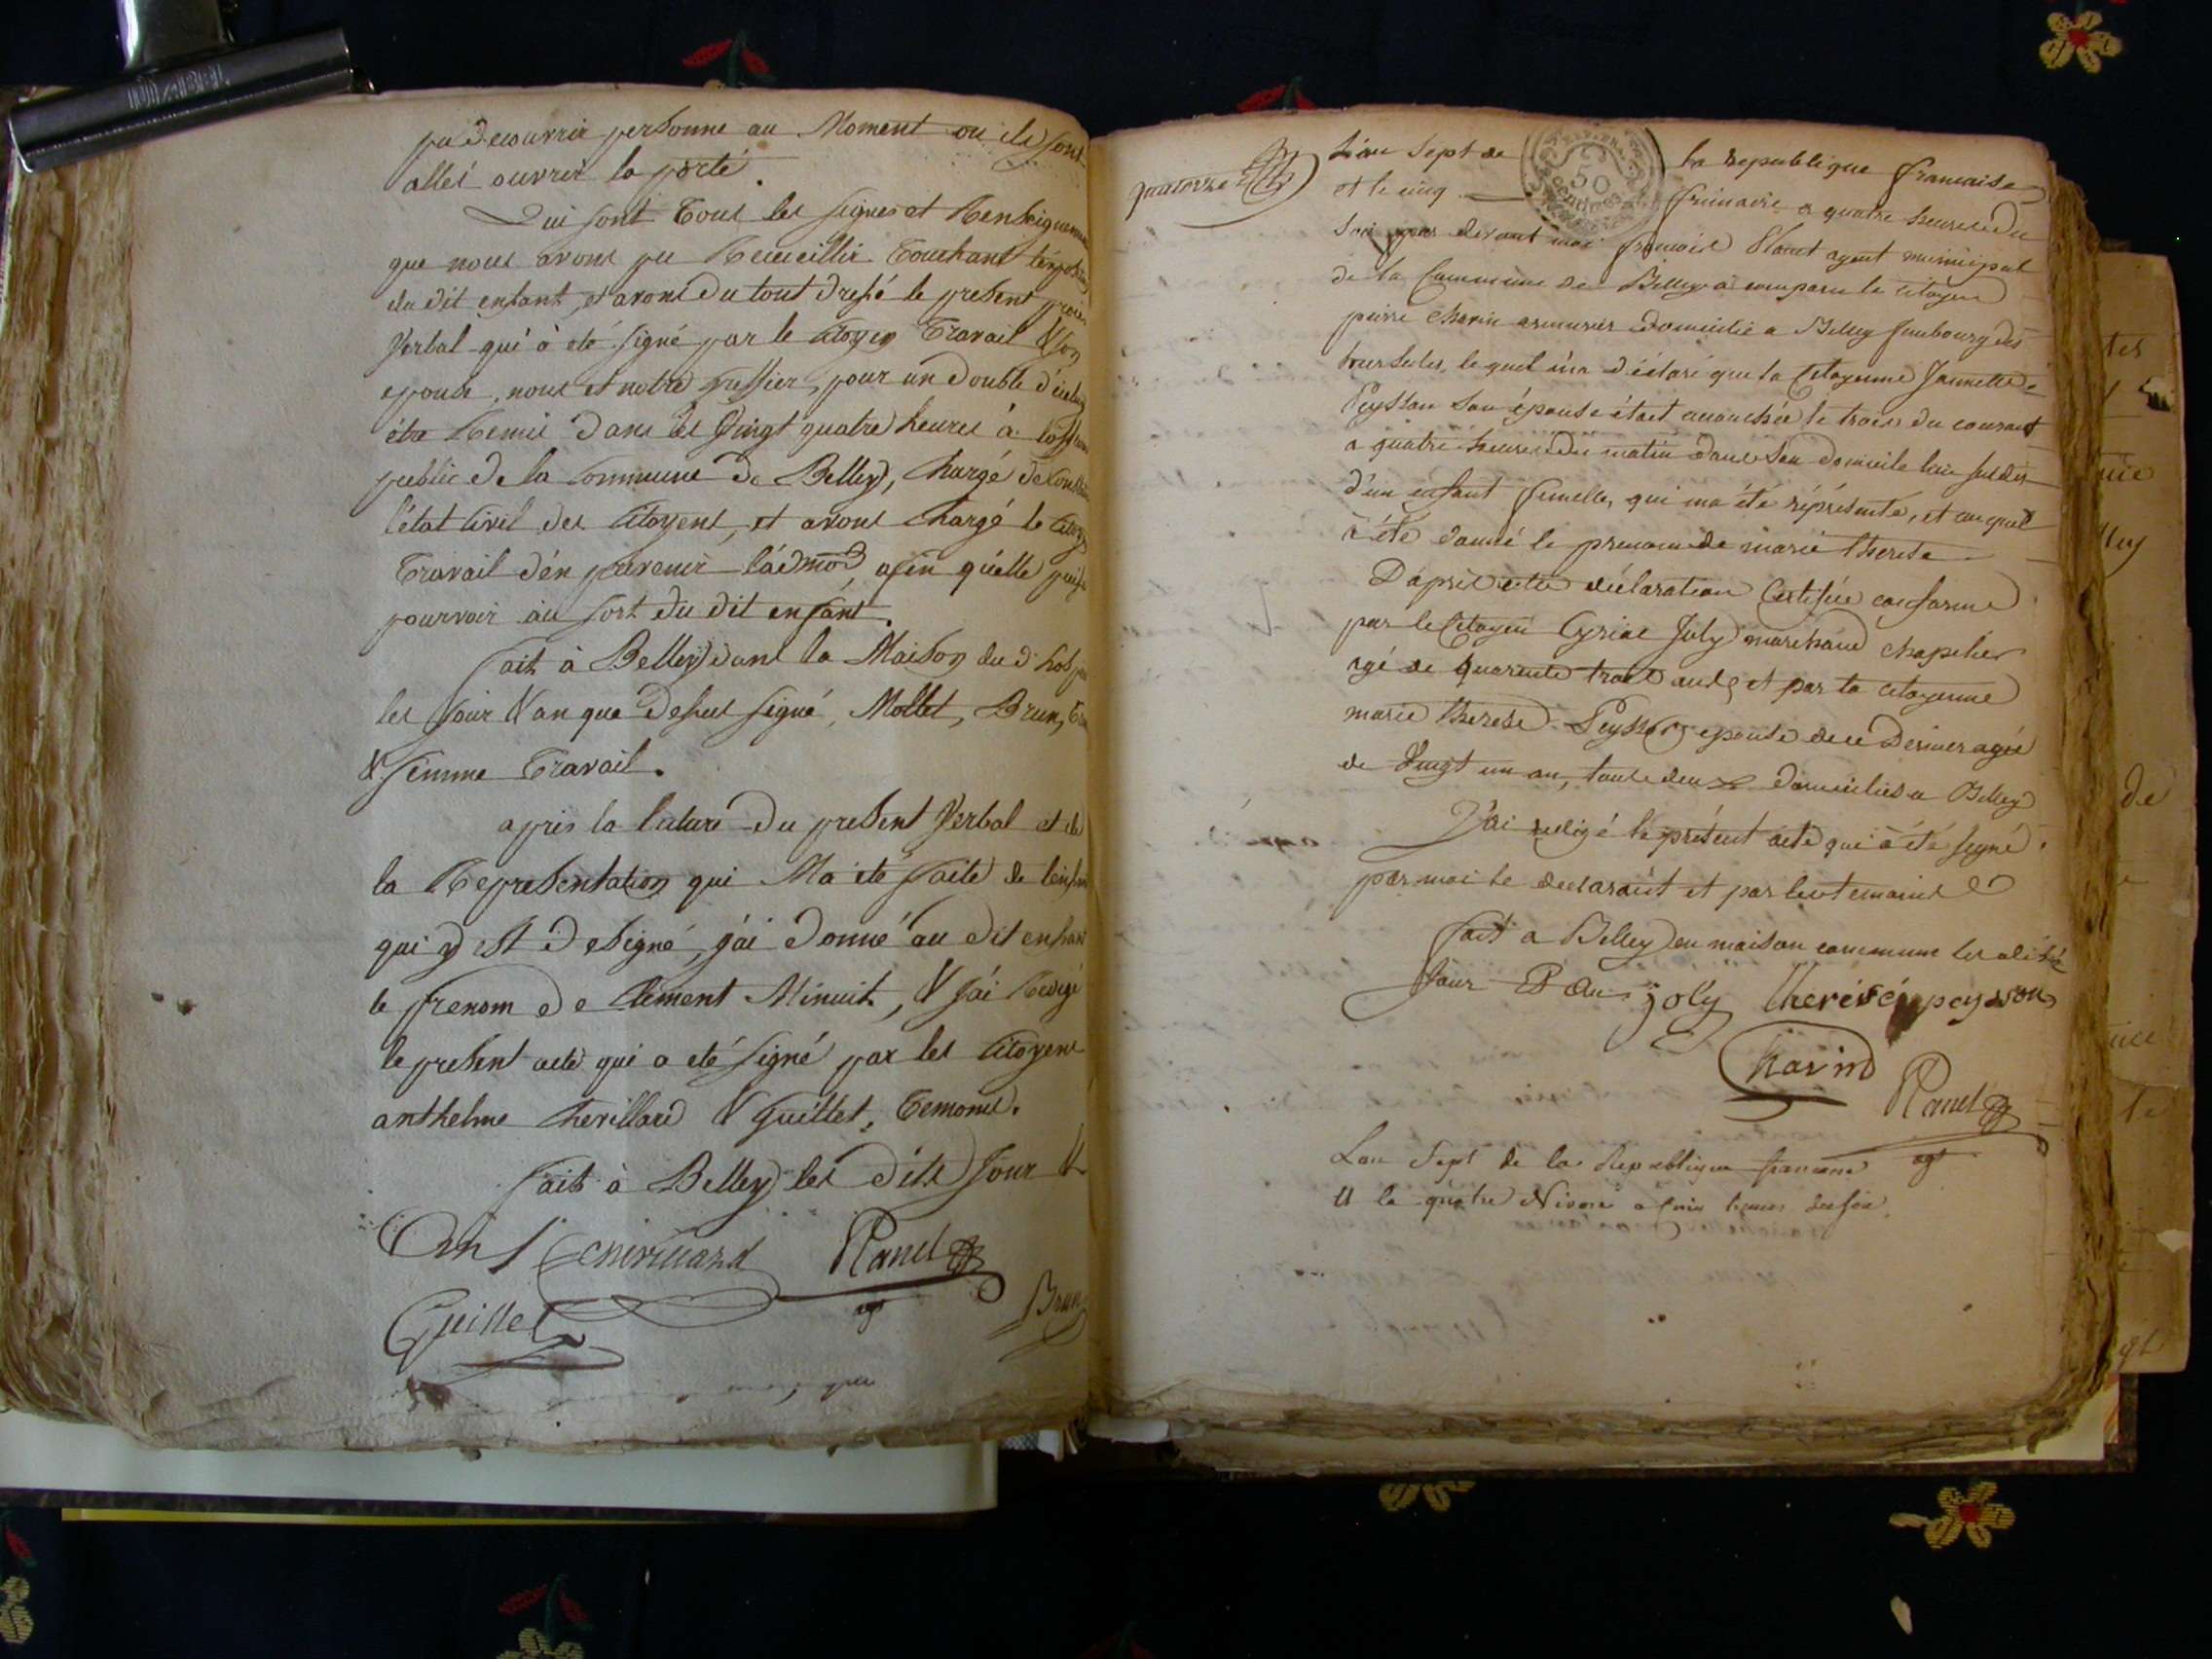 pu decouvrir personne au Moment ou ils sont
allés ouvrir la porte.
Qui sont tous les signes et Renseignemen
que nous avons pu Recueillir touchant
du dit enfant, et avons du tout dressé le present
Verbal qui à eté signé par le Citoyen Travail & son
epouse, nous et notre greffier, pour un double d'icelu
être Remis dans les Vingt quatre heures à
public de la Commune de Belley, Chargé de
l'état Civil des Citoyens, et avons chargé le
Travail d'en prevenir l'admon, afin qu'elle puisse
pourvoir au sort du dit enfant.
fait à Belley dans la Maison du d
les Jour & an que dessus signé, Mollet, Brun,
& femme Travail.
après la lecture du present Verbal et de
la Representation qui M'a eté faite de l'enfan
qui y est designé, j'ai donné au dit enfant
le prenom de Clement Minuit, & j'ai Redigé
le present acte qui a eté signé par les Citoyens
anthelme Chevillard & Guillet, temoins.
fait à Belley les dits Jour &
Ant Chevillard
agt
Guillet
Brun
quatorze
L'an Sept de la republique francaise
et le cinq frimaire a quatre heures du
soir par devant moi francois agent municipal
de la Commune de Belley a comparu le citoyen
pierre Chavin armurier domicilié a Belley faubourg des
lequel m'a déclaré que la Citoyenne Jannette
Peysson son épouse était accouchée le trois du courant
a quatre heures du matin dans son domicile
d'un enfant femelle, qui m'a été réprésenté, et auquel
a été donné le prenom de marie therese
D'après cette déclaration Certifiée conforme
par le Citoyen Cyriac Joly marchand chapelier
agé de quarente trois ans, et par la citoyenne
marie therese Peysson epouse de ce dernier agée
de Vingt un an, tout deux domiciliés a Belley
J'ai redigé le présent acte qui a été signé
par moi le declarant et par les temoins
fait a Belley en maison commune les
Jour & an joly therése peysson
Chavin
agt
Lan Sept de la Republique
& le quatre Nivose a heures du soir
50
centimes